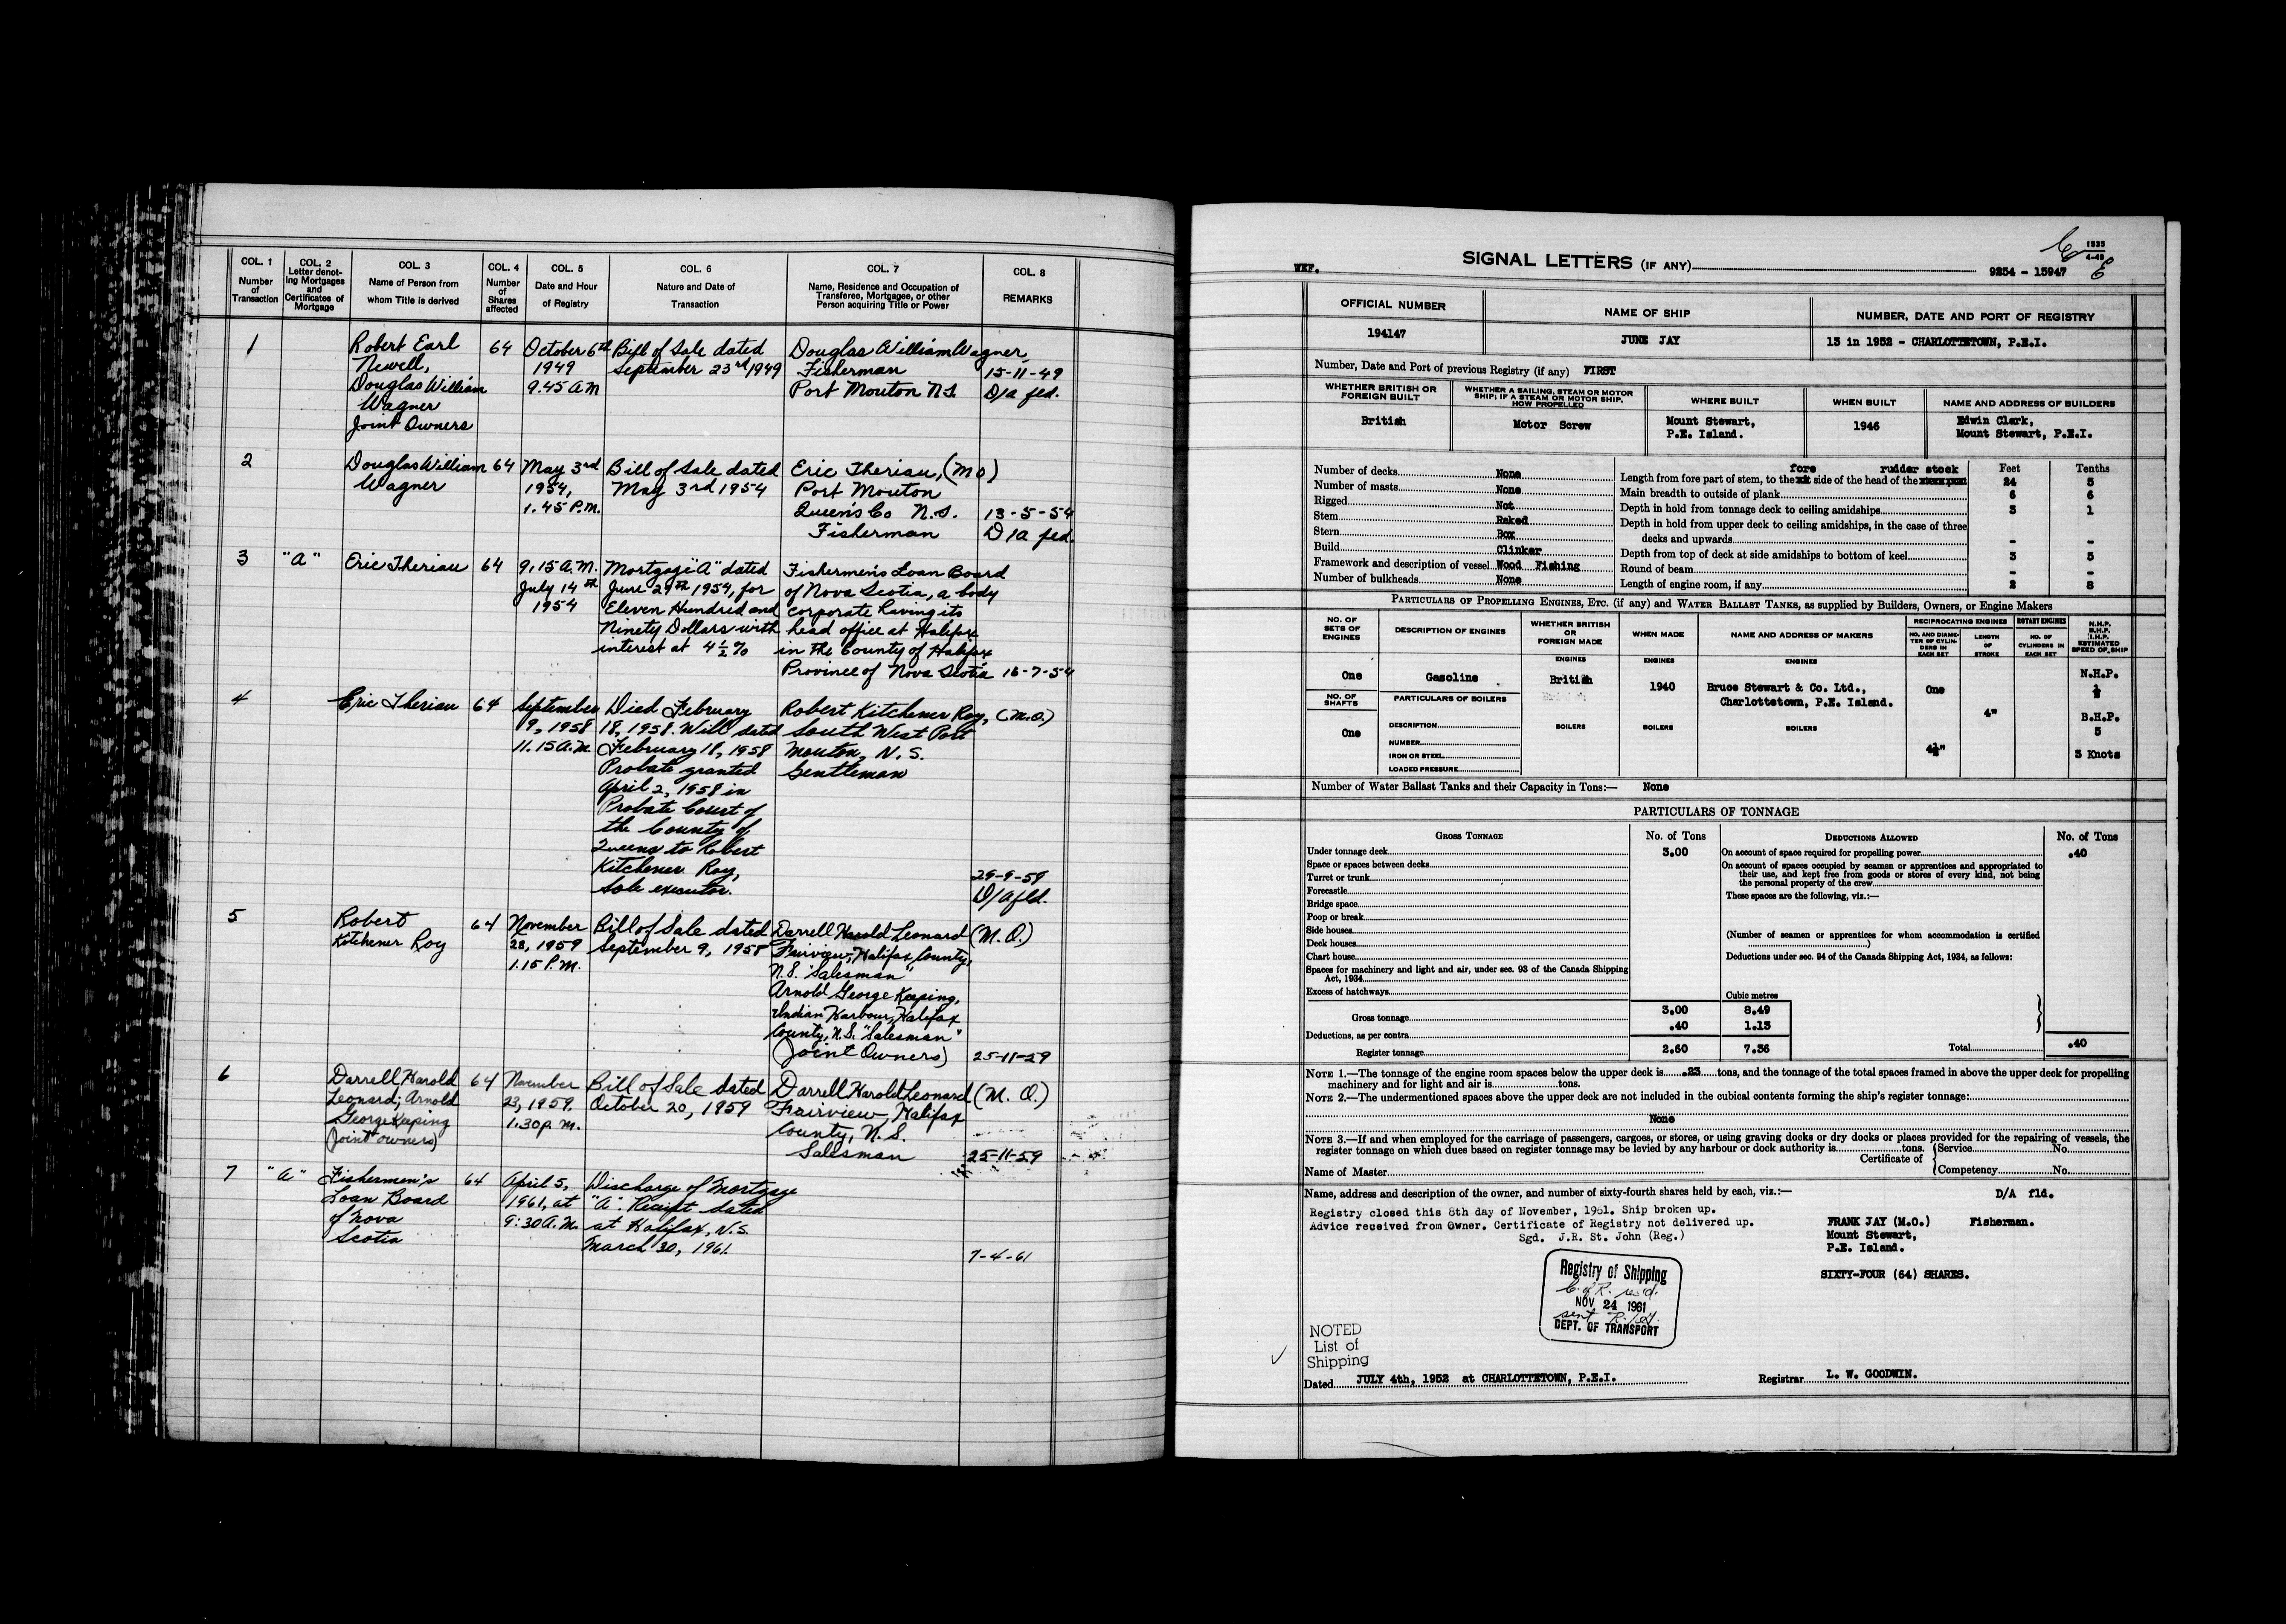 COL. 1 Number of Transaction
COL. 2 Letter denoting Mortgages and Certificates of Mortgage
COL. 3 Name of Person from whom Title is derived
COL. 4 Number of Shares affected
COL. 5 Date and Hour of Registry
COL. 6 Nature and Date of Transaction
COL. 7 Name, Residence and Occupation of Transferee, Mortgagee, or other Person acquiring Title or Power
COL. 8 REMARKS
1
Robert Earl
Newell,
Douglas William
Wagner
Joint Owners
64
October 6th
1949
9.45 A.M
Bill of Sale dated
September 23rd 1949
Douglas William Wagner
Fisherman
Port Mouton N.S.
15-11-49
D/a fed.
2
Douglas William
Wagner
64
May 3rd
1954,
1.45 P.M.
Bill of Sale dated
May 3rd 1954
Eric Theriau, (MO)
Port Mouton
Queens Co N.S.
Fisherman
13-5-54
D/a fed.
3
"A"
Eric Theriau
64
9.15 A.M.
July 14th
1954
Mortgage "A" dated
June 29th 1954, for
Eleven Hundred and
Ninety Dollars with
interest at 4 1/2 %
Fishermen's Loan Board
of Nova Scotia, a body
corporate having its
head office at Halifax
in the County of Halifax
Province of Nova Scotia
16-7-54
4
Eric Theriau
64
September
9, 1958
11.15 A.M.
Died February
18, 1958. Will dated
February 18, 1958
Probate granted
April 2, 1958 in
Probate Court of
the County of
Queens to Robert
Kitchener Roy,
Sole executor.
Robert Kitchener Roy, (M.O.)
South West Port
Mouton, N.S.
Gentleman
D/a fld.
5
Robert
Kitchener Roy
64
November
1959
1.15 P.M.
Bill of Sale dated
September 9, 1958
Darrell Harold Leonard (M.O.)
Fairview, Halifax County,
N.S. "Salesman"
Arnold George Keeping,
Indian Harbour, Halifax
County, N.S. "Salesman"
(Joint Owners)
25-11-59
6
Darrell Harold
Leonard; Arnold
George Keeping
(Joint owners)
64
November
23, 1959.
1.30 p.m.
Bill of Sale dated
October 20, 1959
Darrell Harold Leonard (M.O.)
Fairview, Halifax
County, N.S.
Salesman
25-11-59
7
"A"
Fishermen's
Loan Board
of Nova
Scotia
64
April 5,
1961, at
9:30 A.M.
Discharge of Mortgage
"A". Receipt dated
at Halifax, N.S.
March 30, 1961.
7-4-61
1535
4-49
WKF.
SIGNAL LETTERS (IF ANY)
9254 - 15947
OFFICIAL NUMBER
NAME OF SHIP
NUMBER, DATE AND PORT OF REGISTRY
194147
JUNE JAY
13 in 1952 - CHARLOTTETOWN, P.E.I.
Number, Date and Port of previous Registry (if any) FIRST
WHETHER BRITISH OR FOREIGN BUILT
WHETHER A SAILING, STEAM OR MOTOR SHIP; IF A STEAM OR MOTOR SHIP, HOW PROPELLED
WHERE BUILT
WHEN BUILT
NAME AND ADDRESS OF BUILDERS
British
Motor Screw
Mount Stewart,
P.E. Island.
1946
Edwin Clark,
Mount Stewart, P.E.I.
Number of decks None
Number of masts None
Rigged Not
Stem Raked
Stern Box
Build Clinker
Framework and description of vessel Wood Fishing
Number of bulkheads None
Feet Tenths
fore rudder stock
Length from fore part of stem, to the side of the head of the 24 5
Main breadth to outside of plank 6 6
Depth in hold from tonnage deck to ceiling amidships 3 1
Depth in hold from upper deck to ceiling amidships, in the case of three
decks and upwards - -
Depth from top of deck at side amidships to bottom of keel 3 5
Round of beam - -
Length of engine room, if any 2 8
PARTICULARS OF PROPELLING ENGINES, ETC. (if any) and WATER BALLAST TANKS, as supplied by Builders, Owners, or Engine Makers
NO. OF SETS OF ENGINES
DESCRIPTION OF ENGINES
WHETHER BRITISH OR FOREIGN MADE
WHEN MADE
NAME AND ADDRESS OF MAKERS
RECIPROCATING ENGINES
ROTARY ENGINES
NO. AND DIAMETER OF CYLINDERS IN EACH SET
LENGTH OF STROKE
NO. OF CYLINDERS IN EACH SET
N.H.P.
B.H.P.
I.H.P.
ESTIMATED SPEED OF SHIP
ENGINES ENGINES ENGINES
One
Gasoline
British
1940
Bruce Stewart & Co. Ltd.,
Charlottetown, P.E. Island.
One
4"
4½"
N.H.P.
B.H.P.
5
3 Knots
NO. OF SHAFTS
One
PARTICULARS OF BOILERS
DESCRIPTION
NUMBER
IRON OR STEEL
LOADED PRESSURE
BOILERS BOILERS BOILERS
Number of Water Ballast Tanks and their Capacity in Tons:— None
PARTICULARS OF TONNAGE
GROSS TONNAGE
No. of Tons
DEDUCTIONS ALLOWED
No. of Tons
Under tonnage deck 3.00
Space or spaces between decks
Turret or trunk
Forecastle
Bridge space
Poop or break
Side houses
Deck houses
Chart house
Spaces for machinery and light and air, under sec. 93 of the Canada Shipping
Act, 1934
Excess of hatchways
Cubic metres
Gross tonnage 3.00 8.49
Deductions, as per contra .40 1.13
Register tonnage 2.60 7.36
On account of space required for propelling power .40
On account of spaces occupied by seamen or apprentices and appropriated to
their use, and kept free from goods or stores of every kind, not being
the personal property of the crew
These spaces are the following, viz.:—
(Number of seamen or apprentices for whom accommodation is certified
)
Deductions under sec. 94 of the Canada Shipping Act, 1934, as follows:
Total .40
NOTE 1.—The tonnage of the engine room spaces below the upper deck is .23 tons, and the tonnage of the total spaces framed in above the upper deck for propelling
machinery and for light and air is tons.
NOTE 2.—The undermentioned spaces above the upper deck are not included in the cubical contents forming the ship's register tonnage:
None
NOTE 3.—If and when employed for the carriage of passengers, cargoes, or stores, or using graving docks or dry docks or places provided for the repairing of vessels, the
register tonnage on which dues based on register tonnage may be levied by any harbour or dock authority is tons.
Certificate of
Service No.
Competency No.
Name of Master
Name, address and description of the owner, and number of sixty-fourth shares held by each, viz.:—
D/A fld.
Registry closed this 8th day of November, 1961. Ship broken up.
Advice received from Owner. Certificate of Registry not delivered up.
Sgd. J.R. St. John (Reg.)
FRANK JAY (M.O.) Fisherman.
Mount Stewart,
P.E. Island.
SIXTY-FOUR (64) SHARES.
Registry of Shipping
C. of R.
NOV 24 1961
sent
DEPT. OF TRANSPORT
NOTED
List of
Shipping
Dated JULY 4th, 1952 at CHARLOTTETOWN, P.E.I.
Registrar L. W. GOODWIN.